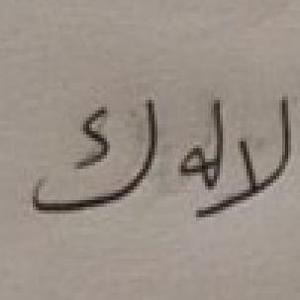 لاله ك